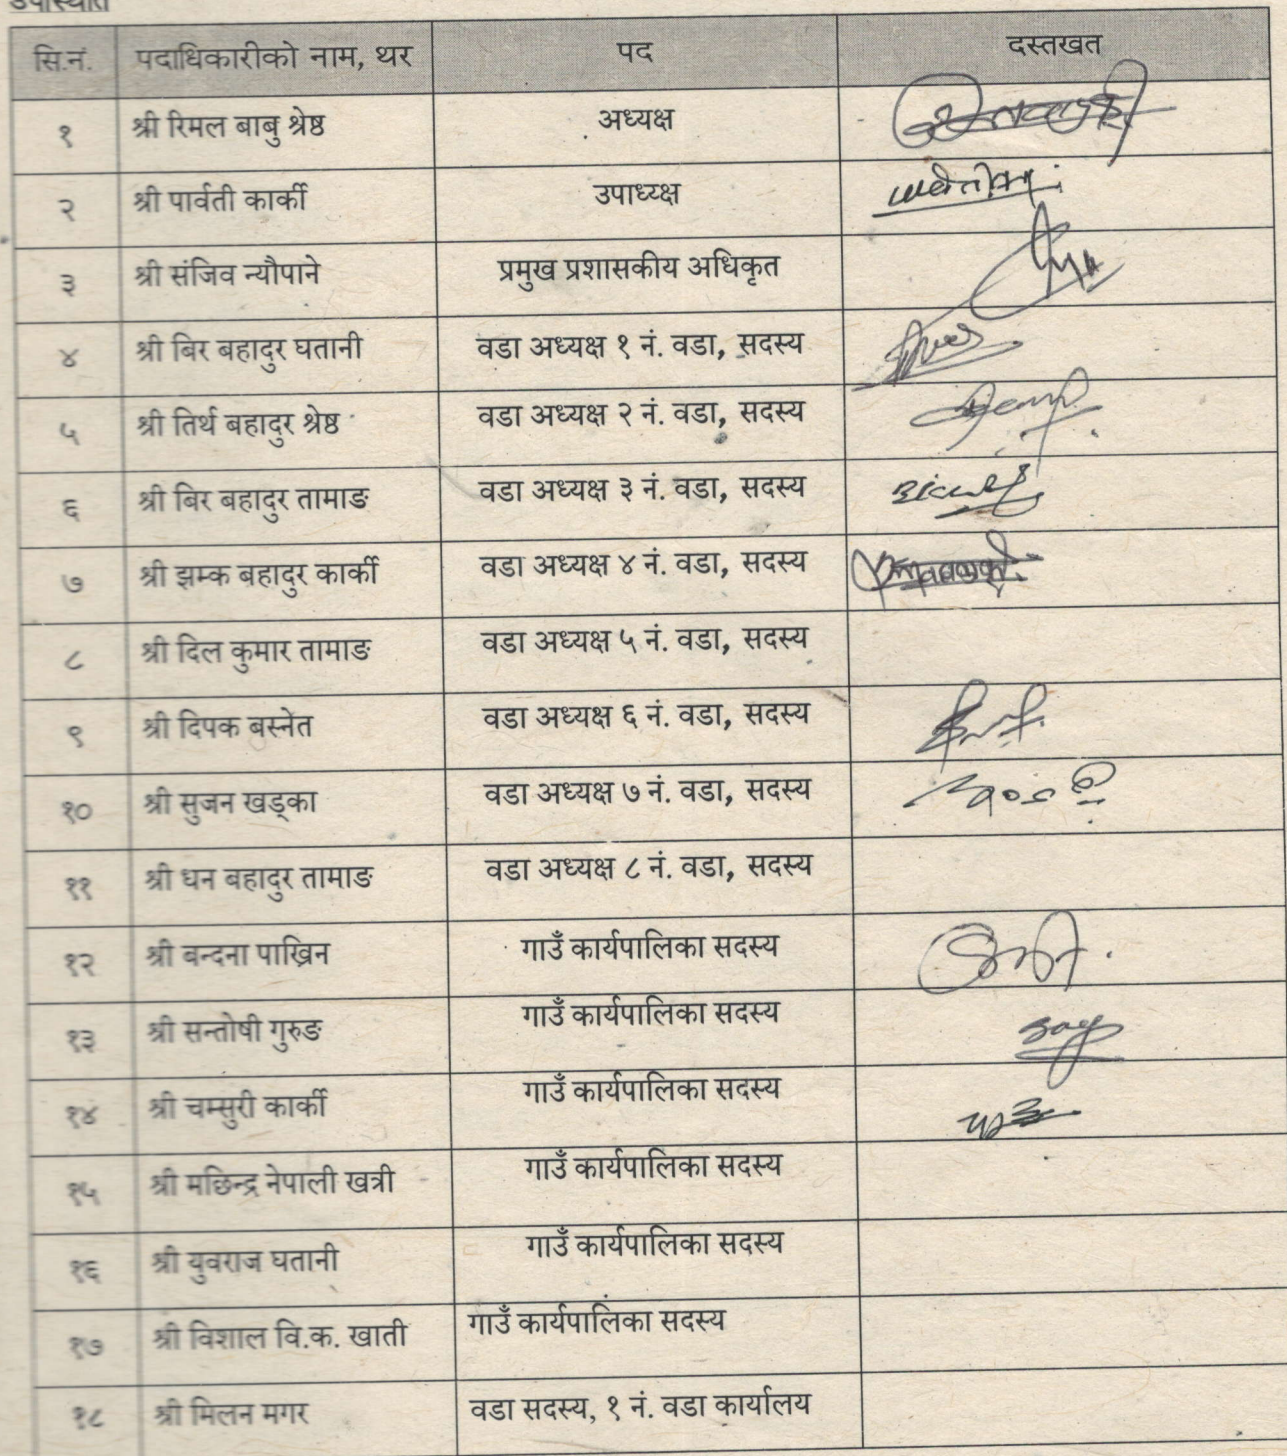 उपस्थिति
सि.नं. पदाधिकारीको नाम, थर पद दस्तखत
१ श्री रिमल बाबु श्रेष्ठ अध्यक्ष
२ श्री पार्वती कार्की उपाध्य्क्ष
३ श्री संजिव न्यौपाने प्रमुख प्रशासकीय अधिकृत
४ श्री बिर बहादुर घतानी वडा अध्यक्ष १ नं. वडा, सदस्य
५ श्री तिर्थ बहादुर श्रेष्ठ वडा अध्यक्ष २ नं. वडा, सदस्य
६ श्री बिर बहादुर तामाङ वडा अध्यक्ष ३ नं. वडा, सदस्य
७ श्री झम्क बहादुर कार्की वडा अध्यक्ष ४ नं. वडा, सदस्य
८ श्री दिल कुमार तामाङ वडा अध्यक्ष ५ नं. वडा, सदस्य
९ श्री दिपक बस्नेत वडा अध्यक्ष ६ नं. वडा, सदस्य
१० श्री सुजन खड्का वडा अध्यक्ष ७ नं. वडा, सदस्य
११ श्री धन बहादुर तामाङ वडा अध्यक्ष ८ नं. वडा, सदस्य
१२ श्री बन्दना पाख्रिन गाउँ कार्यपालिका सदस्य
१३ श्री सन्तोषी गुरुङ गाउँ कार्यपालिका सदस्य
१४ श्री चम्सुरी कार्की गाउँ कार्यपालिका सदस्य
१५ श्री मछिन्द्र नेपाली खत्री गाउँ कार्यपालिका सदस्य
१६ श्री युवराज घतानी गाउँ कार्यपालिका सदस्य
१७ श्री विशाल वि.क. खाती गाउँ कार्यपालिका सदस्य
१८ श्री मिलन मगर वडा सदस्य, १ नं. वडा कार्यालय